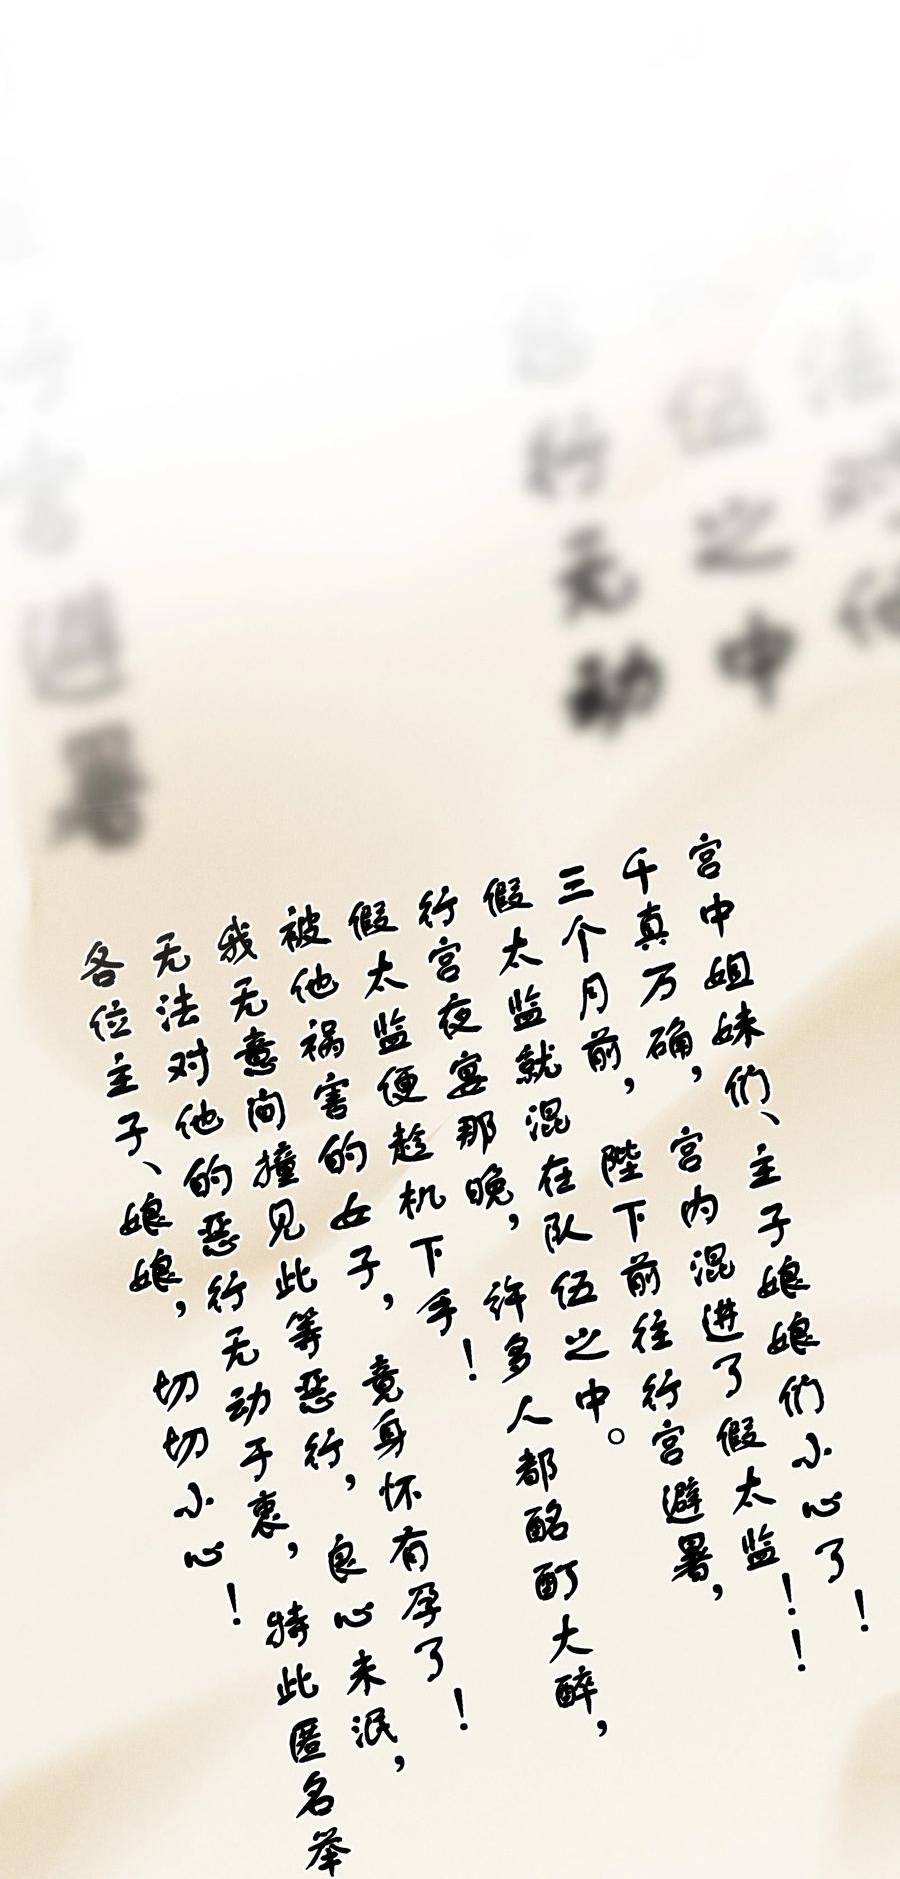 宫中姐妹们、主子娘娘们小心了！
千真万确，宫内混进了假太监！！
三个月前，陛下前往行宫避暑，
假太监就混在队伍之中。
行宫夜宴那晚，许多人都酩酊大醉，
假太监便趁机下手！
被他祸害的女子，竟身怀有孕了！
我无意间撞见此等恶行，良心未泯，
无法对他的恶行无动于衷，特此匿名举
各位主子、娘娘，切切小心！
行宫避暑
行无动
伍之中
法对他